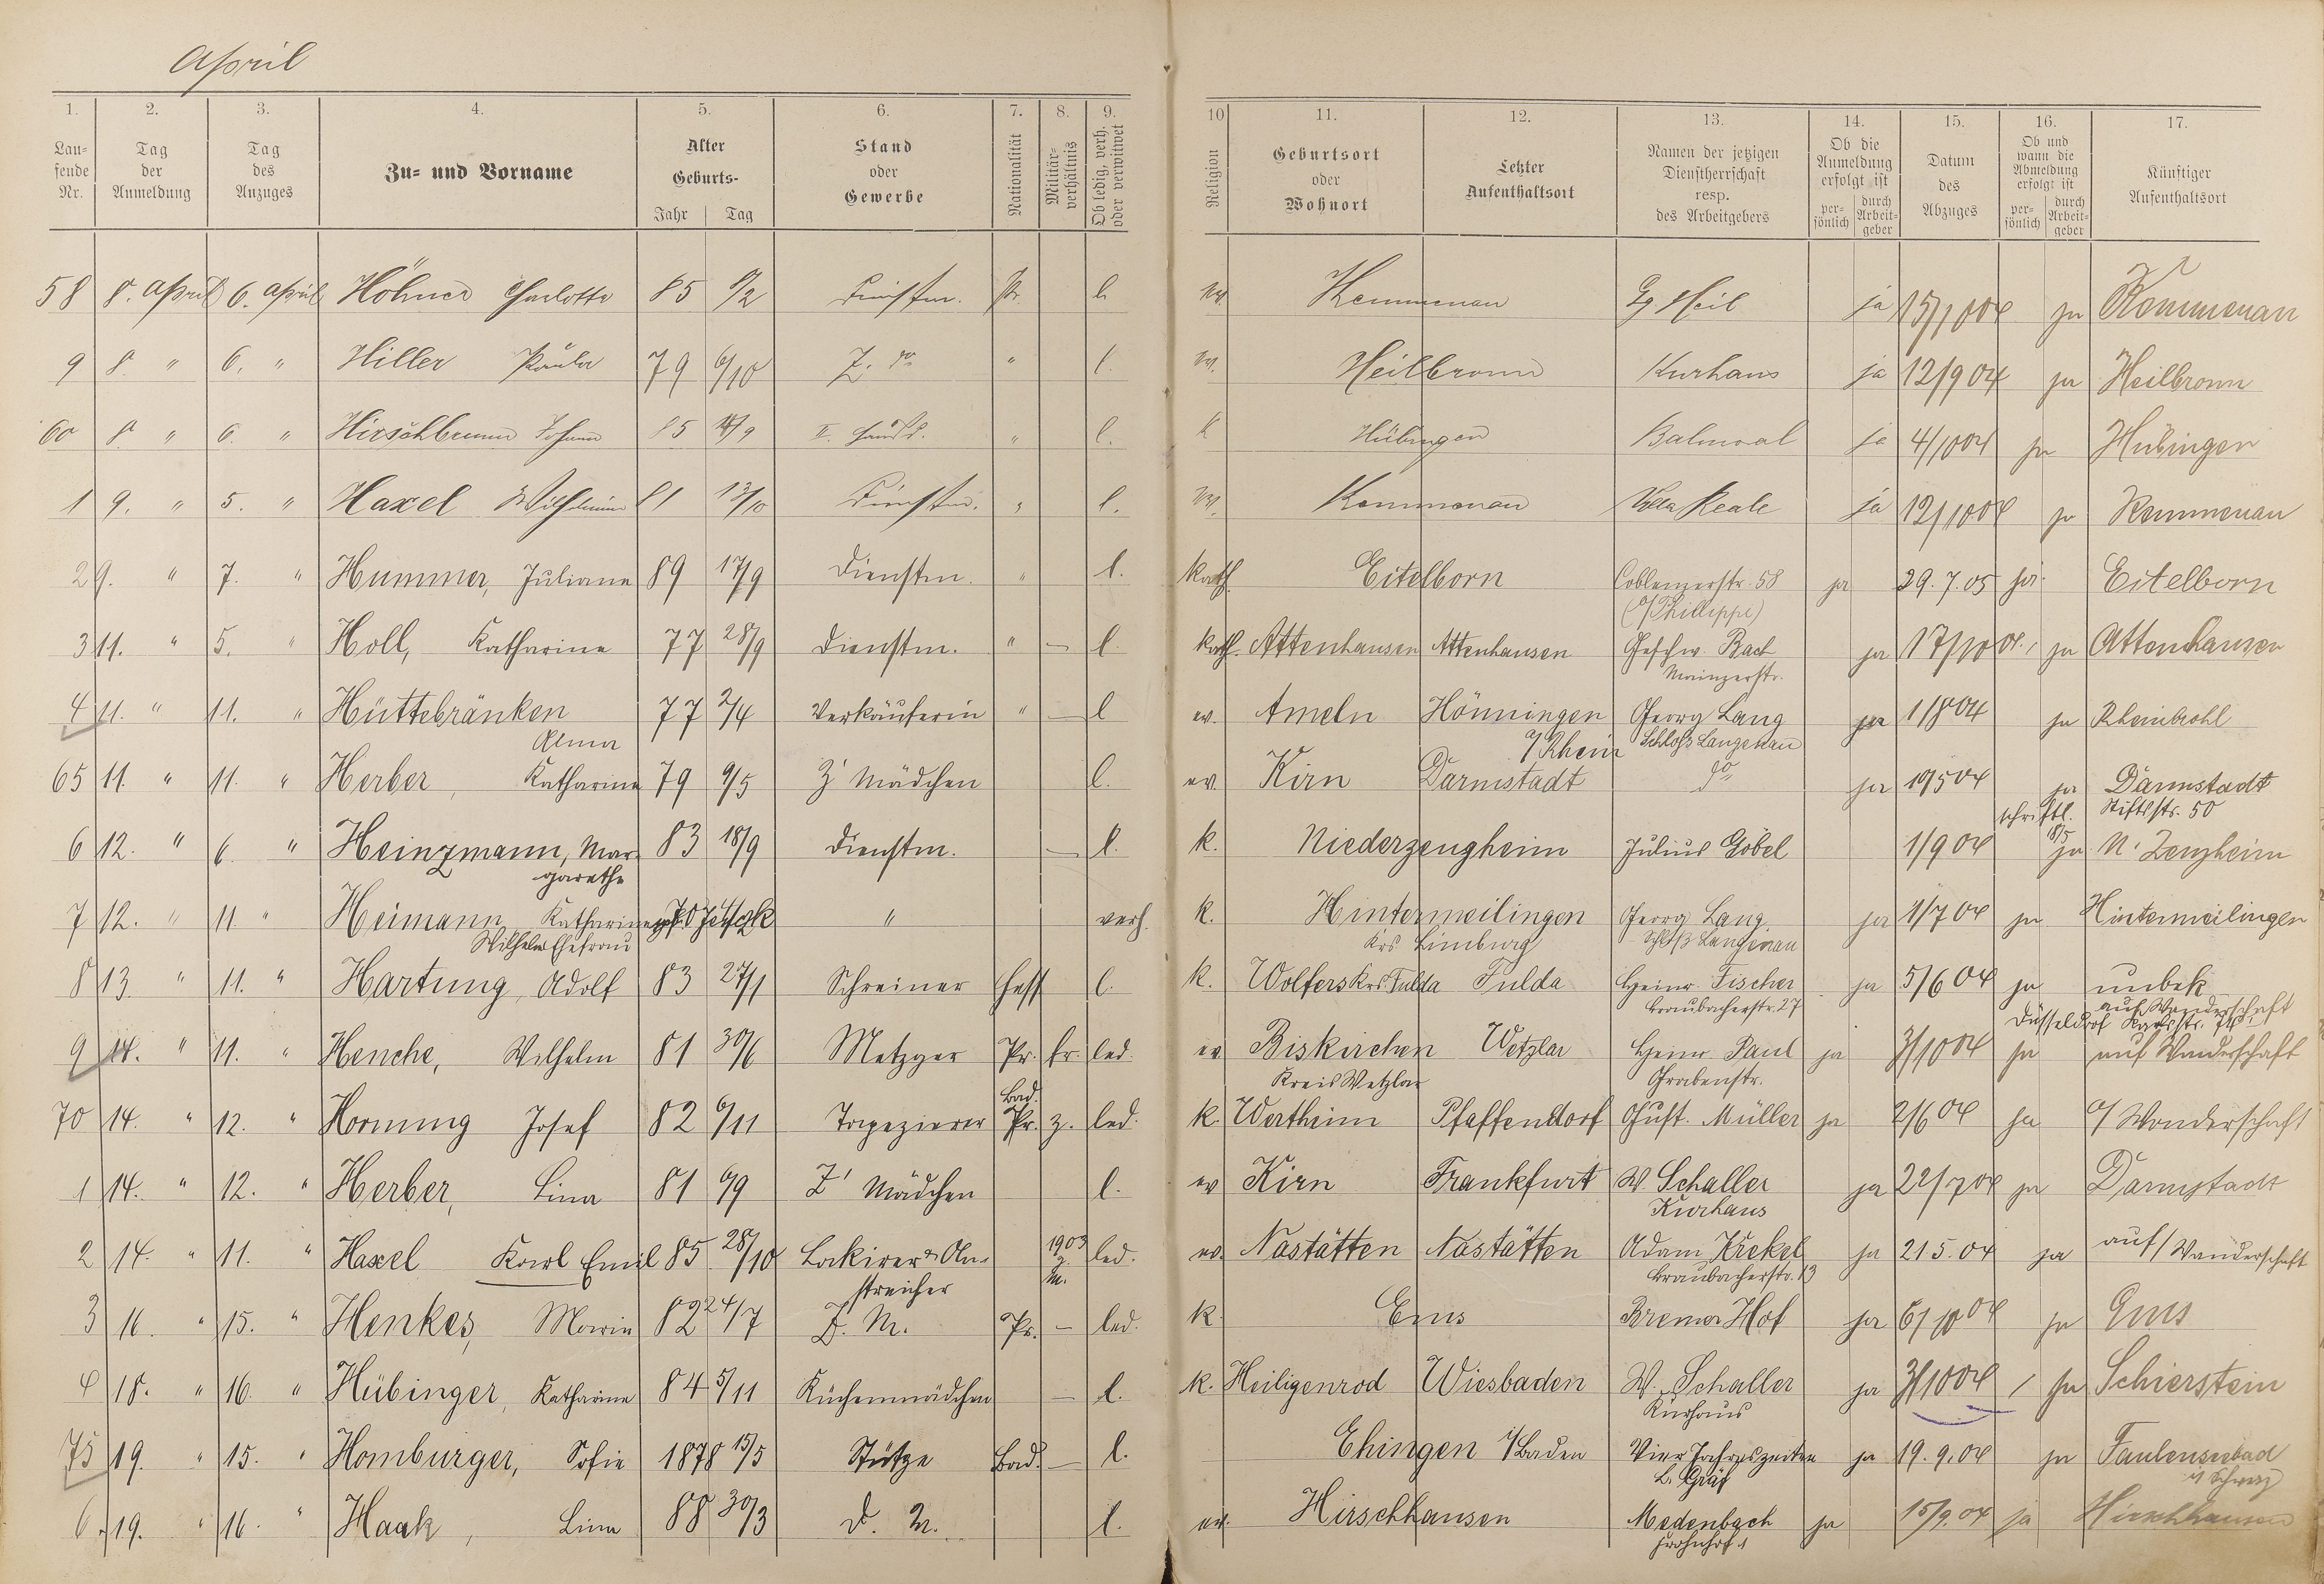 April
1. 2. 3. 4. 5. 6. 7. 8. 9. 10 11. 12. 13. 14. 15. 16. 17.
Lau-
fende
Nr.
Tag
der
Anmeldung
Tag
des
Anzuges
Zu- und Vorname
Alter
Geburts-
Jahr Tag
Stand
oder
Gewerbe
Nationalität
Militär-
verhältnis
Ob ledig, verh.
oder verwitwet
Religion
Geburtsort
oder
Wohnort
Letzter
Aufenthaltsort
Namen der jetzigen
Dienstherrschaft
resp.
des Arbeitgebers
Ob die
Anmeldung
erfolgt ist
per-
sönlich
durch
Arbeit-
geber
Datum
des
Abzuges
Ob und
wann die
Abmeldung
erfolgt ist
per-
sönlich
durch
Arbeit-
geber
Künftiger
Aufenthaltsort
58 8. April 6. April Höhner Charlotte 85 6/2 Dienstm. Pr. l. ev. Kemmenau Gg Heil ja 15/10 04 ja Kemmenau
9 8 " 6. " Hiller Paula 79 6/10 Z. do " l. ev. Heilbronn Kurhaus ja 12/9 04 ja Heilbronn
60 8 " 6. " Hirschbrunn Johann 85 " l. k Hübingen Balmoral ja 4/10 04 ja Hübingen
1 9. " 5. " Haxel Wilhelmine 81 13/10 Dienstm. " l. ev. Kemmenau Villa Reale ja 12/10 04 ja Kemmenau
2 9. " 7. " Hummer, Juliane 89 17/9 Dienstm. " l. kath. Eitelborn Coblenzerstr. 58 ja 29.7.05 ja Eitelborn
(b/Phillippi)
3 11. " 5. " Holl, Katharine 77 28/9 Dienstm. " — l. kath. Attenhausen Attenhausen Geschw. Bach ja 17/10 04. ja Attenhausen
Mainzerstr.
4 11. " 11. " Hüttebräuken 77 2/4 Verkäuferin " — l ev. Ameln Hönningen Georg Lang ja 1/8 04 ja Rheinbrohl
Alma a/Rhein Schloß Langenau
65 11. " 11. " Herber, Katharine 79 9/5 Z' Mädchen l. ev. Kirn Darmstadt do ja 19/5 04 ja Darmstadt
schriftl. 18/5 Stiftstr. 50
6 12. " 6 " Heinzmann, Mar- 83 18/9 Dienstm. — l. k. Niederzeugheim Julius Göbel 1/9 04 ja N. Zeuzheim
garethe
7 12. " 11. " Heimann, Katharine 70 " verh. k. Hintermeilingen Georg Lang ja 1/7 04 ja Hintermeilingen
Wilhelm Ehefrau Krs Limburg Schloß Langenau
8 13 " 11. " Hartung, Adolf 83 27/1 Schreiner Hess l. k. Wolfers Krs. Fulda Fulda Heinr. Fischer ja 5/6 04 ja unbek.
Braubacherstr. 27 auf Wanderschaft
Düsseldorf
9 14. " 11. " Henche, Wilhelm 81 30/6 Metzger Pr. fr. led. ev Biskirchen Wetzlar Heinr. Paul ja 3/10 04 ja auf Wanderschaft
Kreis Wetzlar Grabenstr.
Bad.
70 14. " 12. " Hornung Josef 82 6/11 Tapezierer Pr. z. led. k. Wertheim Pfaffendorf Gust. Müller ja 2/6 04 ja a/Wanderschaft
1 14. " 12. " Herber, Lina 81 6/9 Z' Mädchen l. ev Kirn Frankfurt W. Schaller ja 22/7 04 ja Darmstadt
Kurhaus
2 14. " 11. " Haxel Karl Emil 85 28/10 Lackirer & An- 1903 z. led. ev. Nastätten Nastätten Adam Krekel ja 21 5. 04 ja auf/Wanderschaft
streicher M. Braubacherstr. 13
3 16. " 15. " Henkes, Marie 82 24/7 Z. M. Pr. — led. k Ems Bremer Hof ja 6/10 04 ja Ems
4 18. " 16. " Hübinger, Katharine 84 5/11 Küchenmädchen — l. k. Heiligenrod Wiesbaden W. Schaller ja 3/10 04 ja Schierstein
Kurhaus
75 19. " 15. " Homburger, Sofie 1878 15/5 Stütze Bad. — l. Ehingen i/Baden Vier Jahreszeiten ja 19.9.04 ja Faulenseebad
L. Gräf i/Schweiz
6. 19. " 16. " Haak, Lina 88 30/3 D. M. l. ev. Hirschhausen Medenbach ja 15/9.04 ja Hirschhausen